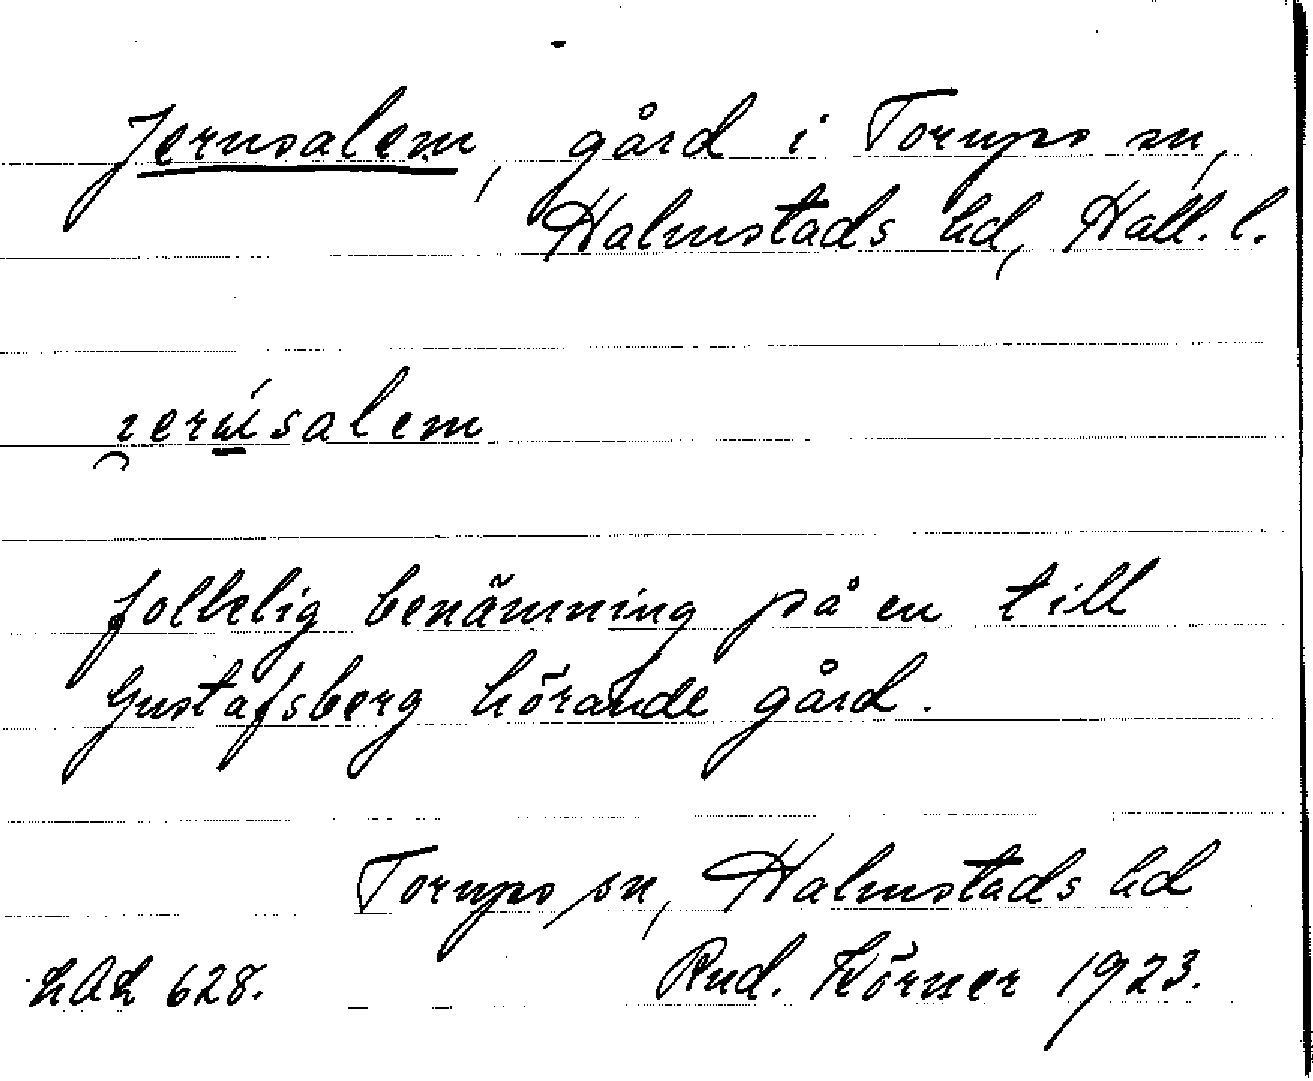 Jerusalem, gård i Torups sn,
Halmstads hd, Hall. l.
ı̯erúsalem
folklig benämning på en till
Gustafsberg hörande gård.
Torups sn, Halmstads hd
LAL 628. Rud. Körner 1923.